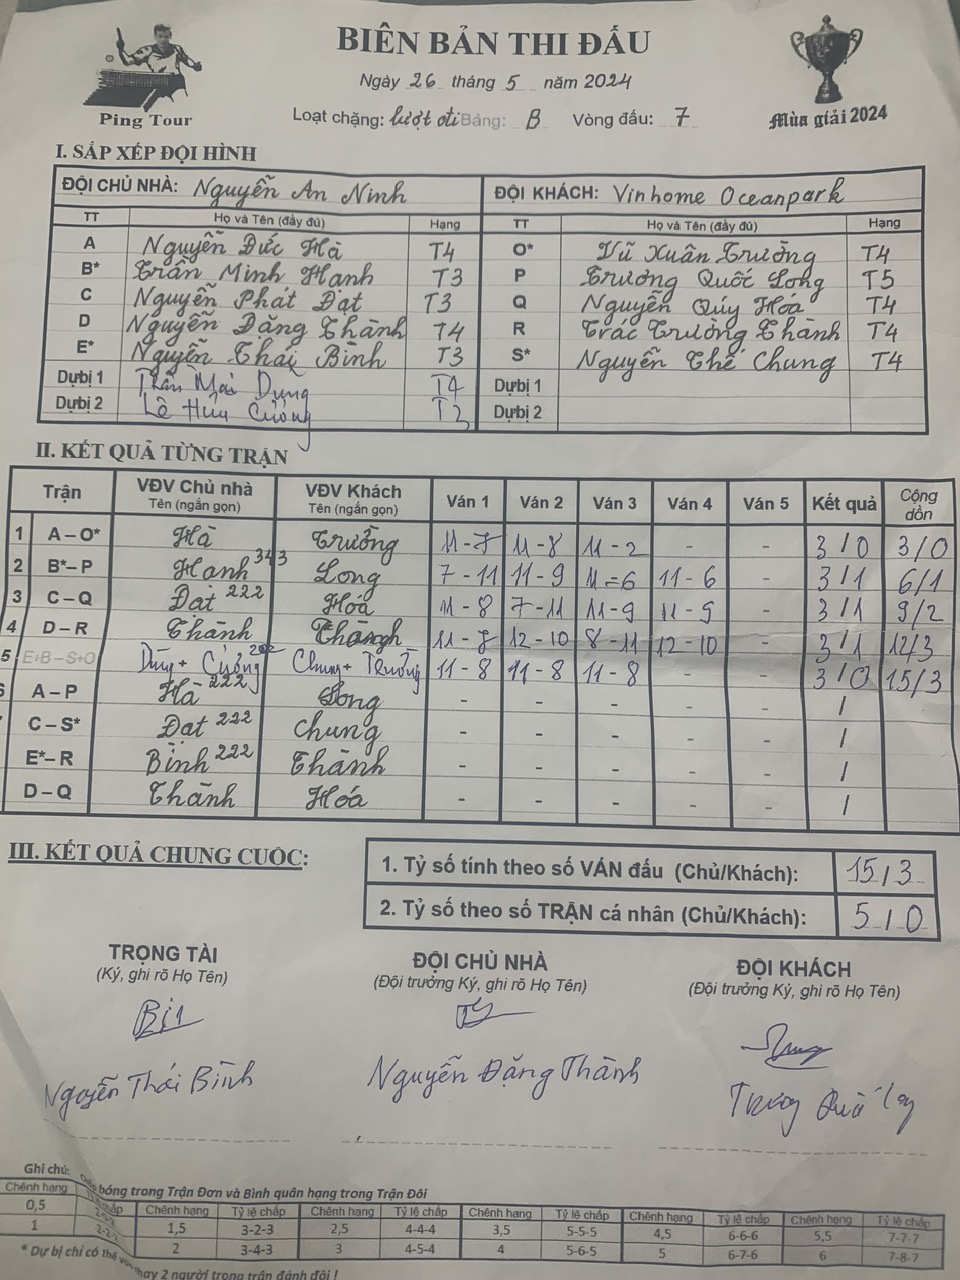 BIÊN BẢN THI ĐẤU
Ngày 26 tháng 5 năm 2024
Ping Tour
Loạt chặng: lượt đi Bảng: B Vòng đấu: 7
Mùa giải 2024
I. SẮP XẾP ĐỘI HÌNH
ĐỘI CHỦ NHÀ: Nguyễn An Ninh ĐỘI KHÁCH: Vinhome Oceanpark
TT Họ và Tên (đầy đủ) Hạng TT Họ và Tên (đầy đủ) Hạng
A Nguyễn Đức Hà T4 O* Vũ Xuân Trường T4
B* Trần Minh Hạnh T3 P Trương Quốc Long T5
C Nguyễn Phát Đạt T3 Q Nguyễn Qúy Hóa T4
D Nguyễn Đặng Thành T4 R Trác Trường Thành T4
E* Nguyễn Thái Bình T3 S* Nguyễn Thế Chung T4
Dự bị 1 Trần Mai Dung T4 Dự bị 1
Dự bị 2 Lê Hữu Cường Dự bị 2
II. KẾT QUẢ TỪNG TRẬN
Trận VĐV Chủ nhà Tên (ngắn gọn) VĐV Khách Tên (ngắn gọn) Ván 1 Ván 2 Ván 3 Ván 4 Ván 5 Kết quả Cộng dồn
1 A – O* Hà Trường 11 - 7 11 - 8 11 - 2 - - 3 / 0 3/0
2 B* – P Hạnh 343 Long 7 - 11 11 - 9 11 - 6 11 - 6 - 3 / 1 6/1
3 C – Q Đạt 222 Hóa 11 - 8 7 - 11 11 - 9 11 - 9 - 3 / 1 9/2
4 D – R Thành Thành 11 - 7 12 - 10 8 - 11 12 - 10 - 3 / 1 12/3
5 E+B – S+O Dũng + Cường 222 Chung + Trường 11 - 8 11 - 8 11 - 8 - - 3 / 0 15/3
A – P Hà 222 Long - - - - - /
C – S* Đạt 222 Chung - - - - - /
E* – R Bình 222 Thành - - - - - /
D – Q Thành Hóa - - - - - /
III. KẾT QUẢ CHUNG CUỘC:
1. Tỷ số tính theo số VÁN đấu (Chủ/Khách): 15 / 3
2. Tỷ số theo số TRẬN cá nhân (Chủ/Khách): 5 / 0
TRỌNG TÀI ĐỘI CHỦ NHÀ ĐỘI KHÁCH
(Ký, ghi rõ Họ Tên) (Đội trưởng Ký, ghi rõ Họ Tên) (Đội trưởng Ký, ghi rõ Họ Tên)
Nguyễn Thái Bình Nguyễn Đặng Thành
Ghi chú: bóng trong Trận Đơn và Bình quân hạng trong Trận Đôi
Chênh hạng chấp Chênh hạng Tỷ lệ chấp Chênh hạng Tỷ lệ chấp Chênh hạng Tỷ lệ chấp Chênh hạng Tỷ lệ chấp Chênh hạng Tỷ lệ chấp
0,5 1,5 3-2-3 2,5 4-4-4 3,5 5-5-5 4,5 6-6-6 5,5 7-7-7
1 2 3-4-3 3 4-5-4 4 5-6-5 5 6-7-6 6 7-8-7
* Dự bị chỉ có thể thay 2 người trong trận đánh đôi !